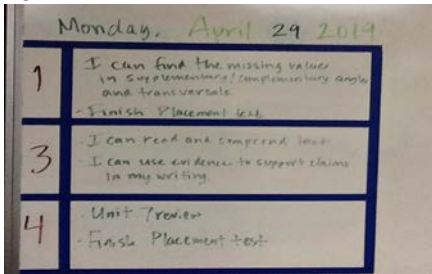 Monday, April 29 2019
1
I can find the missing values
in supplementary/complementary angles
and transversals
- Finish Placement test
3
- I can read and comprend
- I can use evidence to support claims
in my writing.
4
- Unit 7 review
- Finish Placement test